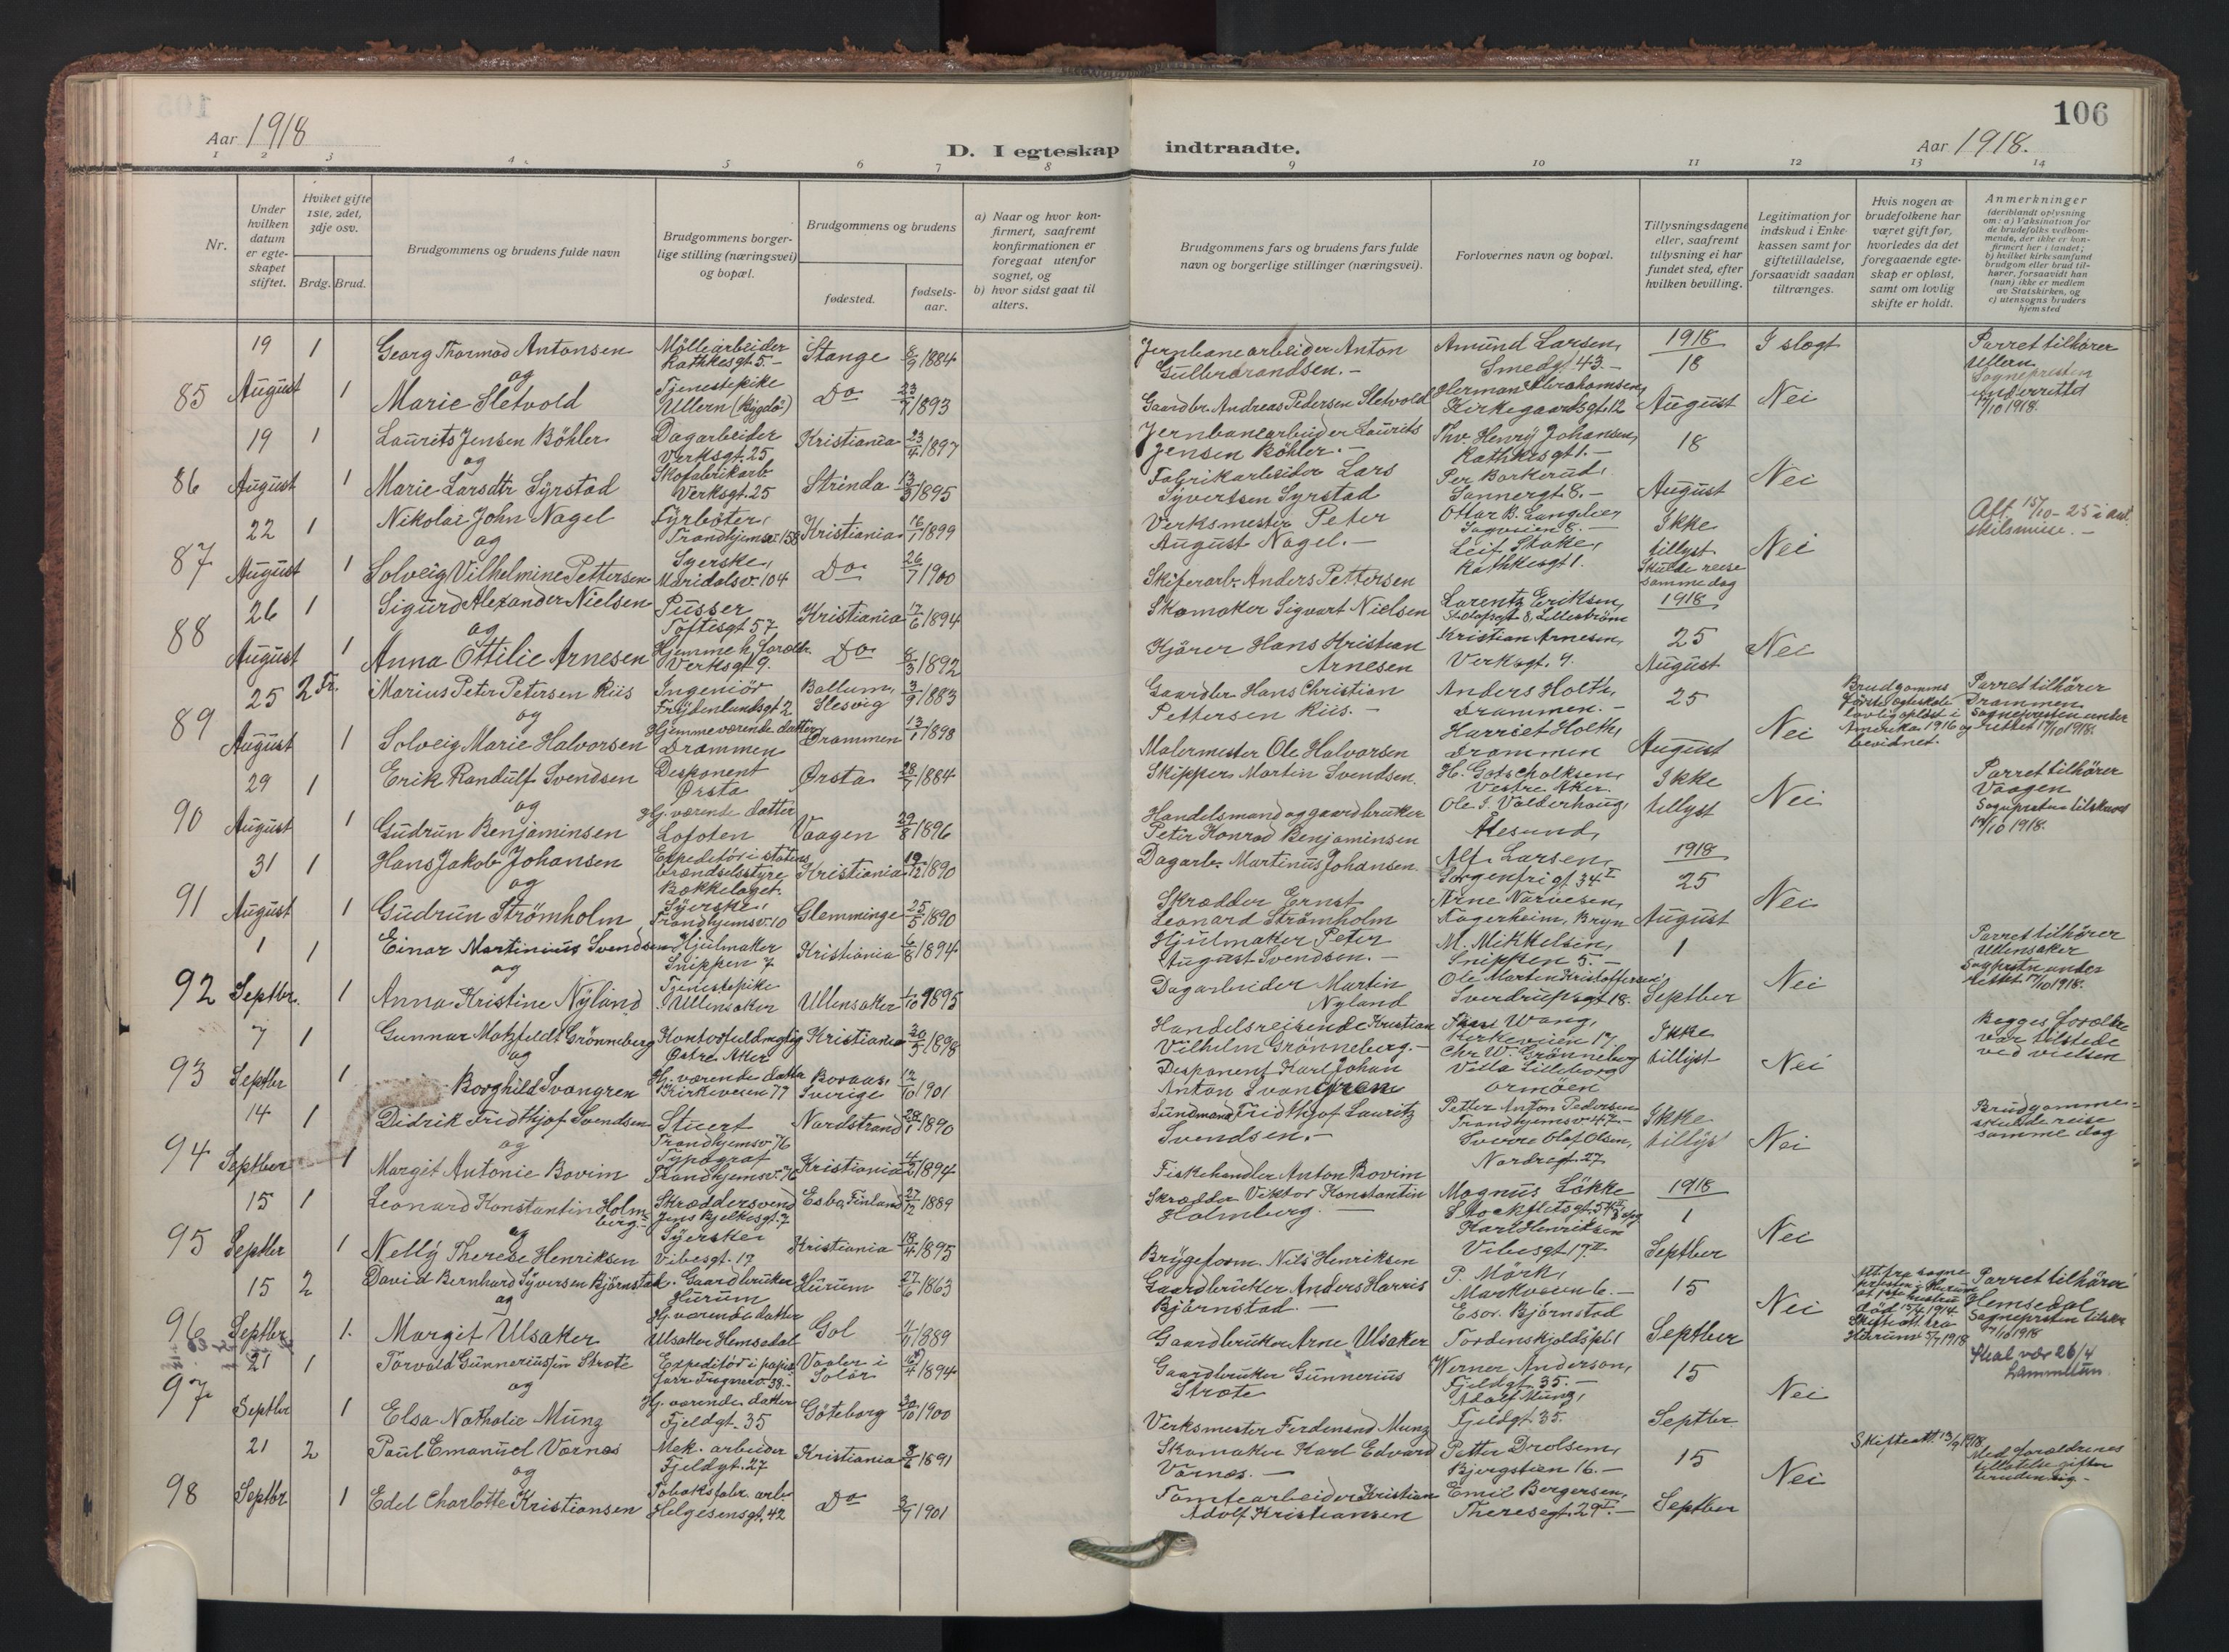 106
Aar 1918
D. I egteskap indtraadte.
Aar 1918.
1 2 3 4 5 6 7 8 9 10 11 12 13 14
Nr.
Under hvilken datum er egteskapet stiftet.
Hvilket gifte 1ste, 2det, 3dje osv.
Brdg. Brud.
Brudgommens og brudens fulde navn
Brudgommens borgerlige stilling (næringsvei) og bopæl.
Brudgommens og brudens
fødested.
fødselsaar.
a) Naar og hvor konfirmert, saafremt konfirmationen er foregaat utenfor sognet, og
b) hvor sidst gaat til alters.
Brudgommens fars og brudens fars fulde navn og borgerlige stillinger (næringsvei).
Forlovernes navn og bopæl.
Tillysningsdagene eller, saafremt tillysning ei har fundet sted, efter hvilken bevilling.
Legitimation for indskud i Enkekassen samt for giftetilladelse, forsaavidt saadan tiltrænges.
Hvis nogen av brudefolkene har været gift før, hvorledes da det foregaaende egteskap er opløst, samt om lovlig skifte er holdt.
Anmerkninger (deriblandt oplysning om: a) Vaksination for de brudefolks vedkommende, der ikke er konfirmert her i landet; b) hvilket kirkesamfund brudgom eller brud tilhører, forsaavidt han (hun) ikke er medlem av Statskirken, og c) utensogns bruders hjemsted
85 19 August 1 Georg Thormod Antonsen Mölleiarbeider Rathkesgt. 5.- Stange 8/9 1884 Jernbanearbeider Anton Gulbrandsen.- Amund Larsen, Smedgt. 43.- 1918 18 August I slegt Nei Parret tilhører Ullern Sognepresten underrettet 17/10 1918.
og
1 Marie Sletvold Tjenestepike Ullern (Bygdö) Do 23/7 1893 Gaardbr. Andreas Pedersen Sletvold Herman Abrahamsen, Kirkegaardsgt. 12
86 19 August 1 Laurits Jensen Böhler Dagarbeider Verksgt. 25 Kristiania 23/4 1897 Jernbanearbeider Laurits Jensen Böhler.- Thv. Henry Johansen, Rathkesgt 1.- 18 August Nei
og
1 Marie Larsdtr Syrstad Skofabrikarb. Verksgt. 25 Strinda 13/3 1895 Fabrikarbeider Lars Syvertsen Syrstad Per Barkerud, Sannergt. 8.-
87 22 August 1 Nikolai John Nagel Fyrböter, Trondhjemsv. 158 Kristiania 16/1 1899 Verksmester Peter August Nagel.- Ottar B. Langlien Sagveien 8.- Ikke tillyst. Skulde reise samme dag Nei Att. 15/10-25 i anl. skilsmisse.-
og
1 Solveig Vilhelmine Pettersen Syerske, Maridalsv. 104 Do 26/7 1900 Skiferarb. Anders Pettersen Leif Stake, Rathkesgt 1.
88 26 August 1 Sigurd Alexander Nielsen Pusser Toftesgt 57 Kristiania 17/6 1894 Skomaker Sigvart Nielsen Lorentz Eriksen, St. Olafsgt 8, Lilleström 1918 25 August Nei
og
1 Anna Ottilie Arnesen Hjemme h. foræld. Verksgt. 9. Do 8/3 1892 Kjörer Hans Kristian Arnesen Kristian Arnesen, Verksgt. 9.
89 25 August 2 Fr. Marius Peter Petersen Riis Ingeniör Frydenlundsgt 2 Ballum, Slesvig 3/9 1883 Gaardbr Hans Christian Pettersen Riis.- Anders Holth, Drammen.- 25 August Nei Brudgommens første egteskab lovlig opløst i Amerika 1916 og bevidnet. Parret tilhører Drammen Sognepresten underrettet 17/10 1918.
og
1 Solveig Marie Halvorsen Hjemmeværende datter Drammen Drammen 13/1 1898 Malermester Ole Halvorsen Harriet Holth, Drammen
90 29 August 1 Erik Randulf Svendsen Disponent Ørsta Ørsta 28/7 1884 Skipper Martin Svendsen. H. Gotscholksen, Vestre Aker. Ikke tillyst Nei Parret tilhører Vaagen Sognepresten tilskrevet 17/10 1918.
og
1 Gudrun Benjaminsen Hj. værende datter Lofoten Vaagen 29/8 1896 Handelsmand og gaardbruker Peter Konrad Benjaminsen Ole J. Valderhaug, Ålesund,
91 31 August 1 Hans Jakob Johansen Expeditör i statens brændselsstyre Bækkelaget. Kristiania 19/12 1890 Dagarb. Martinus Johansen. Alf. Larsen, Sorgenfrigt 34 I 1918 25 August Nei
og
1 Gudrun Strömholm Syerske, Trondhjemsv. 10 Glemminge 25/5 1890 Skrædder Ernst Leonard Strömholm Arne Narvesen, Fagerheim, Bryn
92 1 Septbr. 1 Einar Martinius Svendsen Hjulmaker Snippen 7 Kristiania 6/8 1894 Hjulmaker Peter August Svendsen.- M. Mikkelsen, Snippen 5.- 1 Septber Nei Parret tilhører Ullensaker Sognepresten underrettet 17/10 1918.
og
1 Anna Kristine Nyland Tjenestepike Ullensaker Ullensaker 1/10 1895 Dagarbeider Martin Nyland Ole Martin Kristoffersen, Sverdrupsgt 18.
93 7 Septbr 1 Gunnar Motzfeldt Grönneberg Kontorfuldmegtig Østre Aker Kristiania 30/5 1898 Handelsreisende Kristian Vilhelm Grönneberg.- Wang, Kirkeveien 17. Ikke tillyst Nei Begges forældre var tilstede ved vielsen
og
1 Borghild Svangren Hj. værende datter Kirkeveien 77 Boraas, Sverige 12/10 1901 Disponent Karl Johan Anton Svangren Chr W. Grönneberg Villa Lilleborg Ormöen
94 14 Septber 1 Didrik Fridthjof Svendsen Stuert Trondhjemsv. 76 Nordstrand 28/1 1890 Fridthjof Lauritz Svendsen.- Petter Anton Pedersen Trondhjemsv. 47.- Ikke tillyst Nei Brudgommen skulde reise samme dag
og
1 Margit Antonie Bovim Typograf Trondhjemsv. 76 Kristiania 4/2 1894 Fiskehandler Anton Bovim Sverre Olaf Olsen, Nordregt. 27
95 15 Septbr 1 Leonard Konstantin Holmberg.- Skræddersvend Jens Bjelkesgt. 7 Esbo, Finland 27/12 1889 Skrædder Viktor Konstantin Holmberg.- Magnus Lökke 1918 1 Septber Nei
og
1 Nelly Therese Henriksen Syerske, Vibesgt. 17 Kristiania 18/4 1895 Bryggeform. Nils Henriksen Karl Henriksen Vibesgt 17 II
96 15 Septbr 2 David Bernhard Syversen Björnstad Gaardbruker Hurum Hurum 27/6 1863 Gaardbruker Anders Harris Björnstad.- P. Mörk, Markveien 6.- 15 Septber Nei Parret tilhører Hemsedal Sognepresten tilskr. 17/10 1918
og
1. Margit Ulsaker Hj. værende datter Ulsaker Hemsedal Gol 1889 Gaardbruker Arne Ulsaker Björnstad Tordenskjoldspl. 1
97 21 Septbr 1 Torvald Gunneriussön Stræte Expeditör i papirforr. Frognerv. 38.- Vaaler i Solör 16/4 1894 Gaardbruker Gunnerius Stræte Werner Anderson, Fjeldgt. 35.- 15 Septbr Nei Skal være 26/4
og
1 Elsa Nathalie Münz Hj. værende datter Fjeldgt. 35 Göteborg 30/10 1900 Verksmester Ferdinand Münz Adolf Münz, Fjeldgt 35.
98 21 Septbr 2 Paul Emanuel Værnes Mek. arbeider Fjeldgt. 27 Kristiania 8/6 1891 Skomaker Karl Edvard Værnes.- Petter Drolsum, Bjergstien 16.- 15 Septber Nei Skifteatt. 13/9 1918 Med forældrenes tillatelse gifter bruden sig.-
og
1 Edel Charlotte Kristiansen Tobaksfabr. arb. Helgesensgt. 42 Do 3/7 1901 Tomtearbeider Kristian Adolf Kristiansen Emil Bergersen, Theresegt. 29 I.-